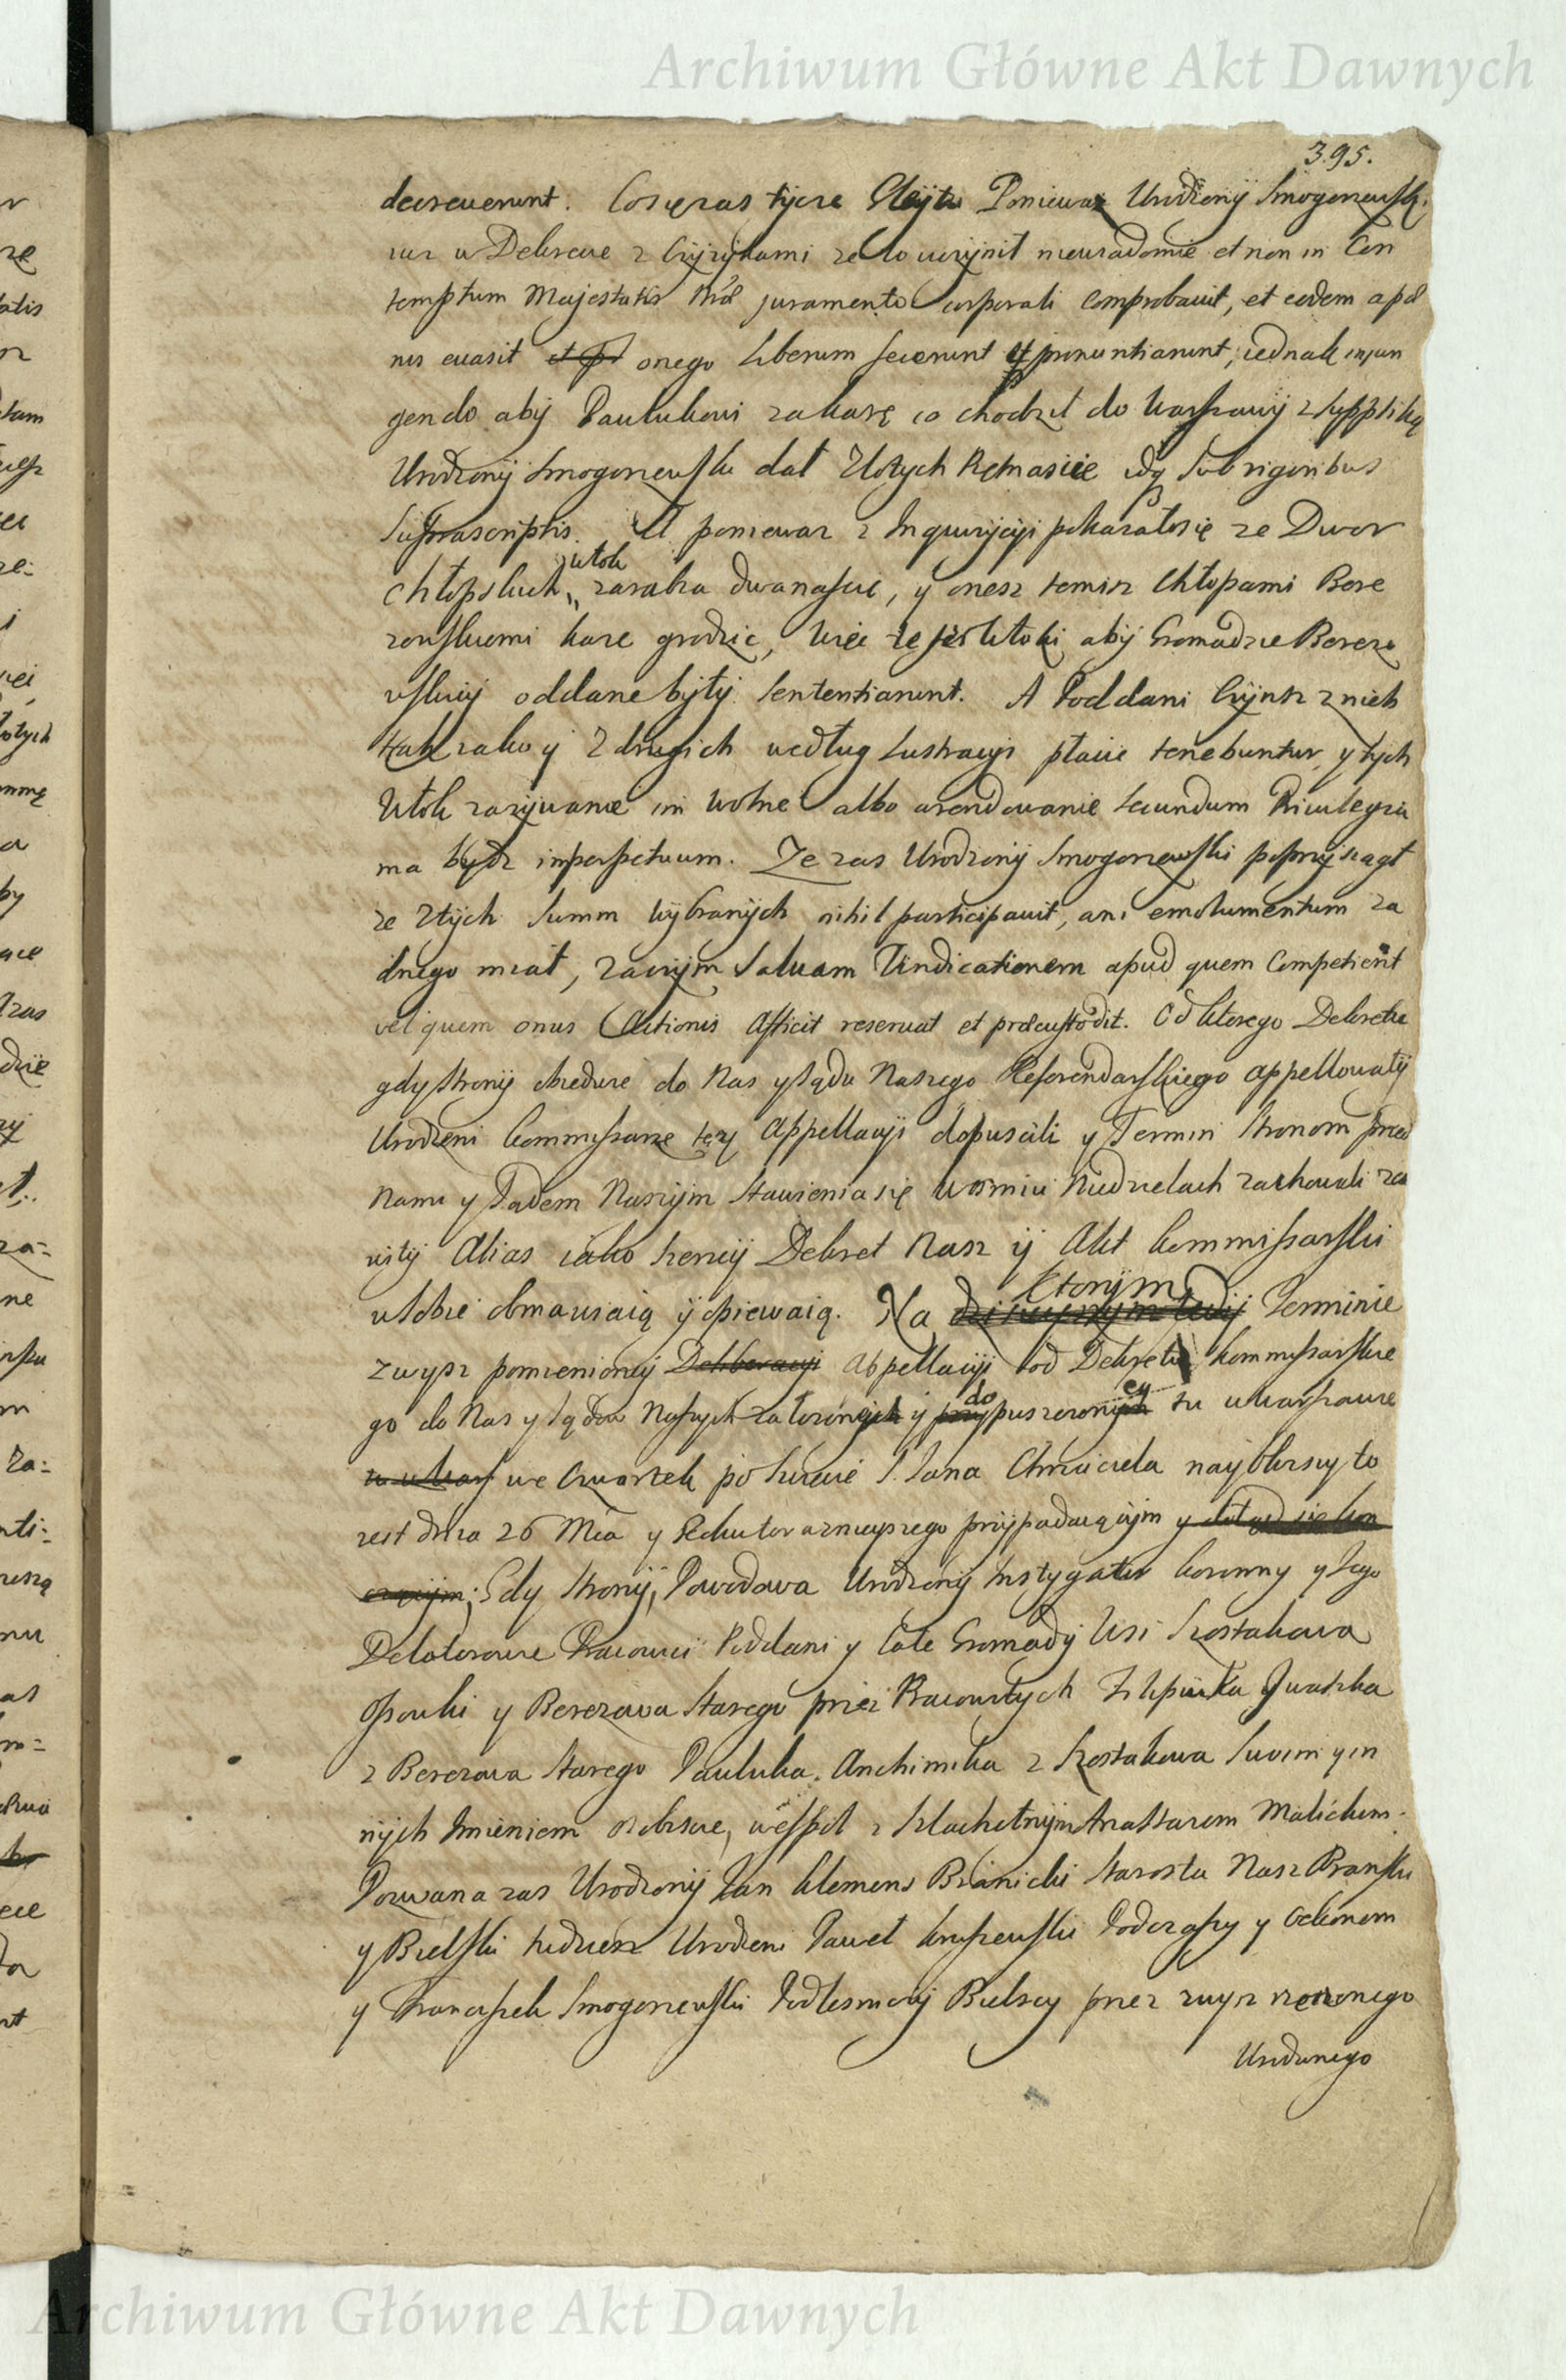 Archiwum Główne Akt Dawnych
395.
decreuerunt. Co się zas tycze Gleytu Poniewaz Urodzony Smogorzewsk.
iuz w Dekrecie z Czyzykami ze to uczynił niewiadomie et non in Con
temptum Majestatis juramento corporali comprobauit, et eodem apd
nis euasit et onego Liberum fecerunt et pronuntiarunt; iednak injun
gendo aby Paulukowi za karę co chodził do Warszawy z suppliką
Urodzony Smogorzewski dał Złotych Piętnascie idq Sub rigoribus
Suprascriptis. A poniewaz z Inquizycyi pokazało się ze Dwor
włok
chłopskich zarabia dwanascie, y onesz temisz Chłopami Bere
zowskiemi kaze grodzic, więc te włoki aby Gromadzie Berezo
wskiy oddane były Sententiarunt. A Poddani Czynsz z nich
tak iako y z drugich według Lustracyi płacic tenebuntur, y tych
Włok zazywanie im wolne albo arendowanie secundum Priuilegia
ma bydz inperpetuum. Ze zas Urodzony Smogorzewski poprzysiągł
ze z tych Summ wybranych nihil participauit, ani emolumentum za
dnego miał, zaczym Saluam Vindicationem apud quem Competient
vel quem onus Actionis afficit reseruat et præcustodit. Od ktorego Dekretu
gdy strony obiedwie do Nas y Sądu Naszego Referendarskiego appellowały
Urodzeni Kommissarze tęz Appellacyi dopuscili y Termin Stronom przed
Nami y Sądem Naszym stawienia się w osmiu Niedzielach zachowali za
wity Alias iako szerzey Dekret Nasz y Akt Kommissarski
w sobie obmawiaią y opiewaią. Na
ktorym
Terminie
zwysz pomienioney Deliberacyi Appellacyi od Dekretu Kommissarskie
do ey
go do Nas y Sądow Naszych załozonych y przypuszczonych tu w Warszawie
w Wars we Czwartek po Swięcie S. Jana Chrzciciela naybliszy to
iest dnia 26 Mca y Roku teraznieyszego przypadaiącym y dotąd się kon
czącym; Gdy Strony, Powodowa Urodzony Instygator koronny y Jego
Delatorowie Pracowici Poddani y całe Gromady Wsi Szostakowa
Osowki y Berezowa Starego przez Pracowitych Iwaszka
z Berezowa Starego Pauluka Anchimika z Szostakowa Swoim y in
nych Imieniem oczebiscie, wespoł z Szlachetnym Anastazem Malickim.
Pozwana zas Urodzony Jan Klemens Branicki Starosta Nasz Branski
y Bielski tudziesz Urodzeni Paweł Kruszewski Podczaszy y Oekonom
y Franciszek Smogorzewski Podlesniczy Bielscy przez zwysz rzeczonego
Urodzonego
Archiwum Główne Akt Dawnych